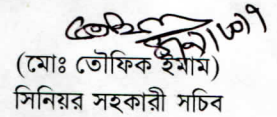 (মোঃ তৌফিক ইমাম)
সিনিয়র সহকারী সচিব